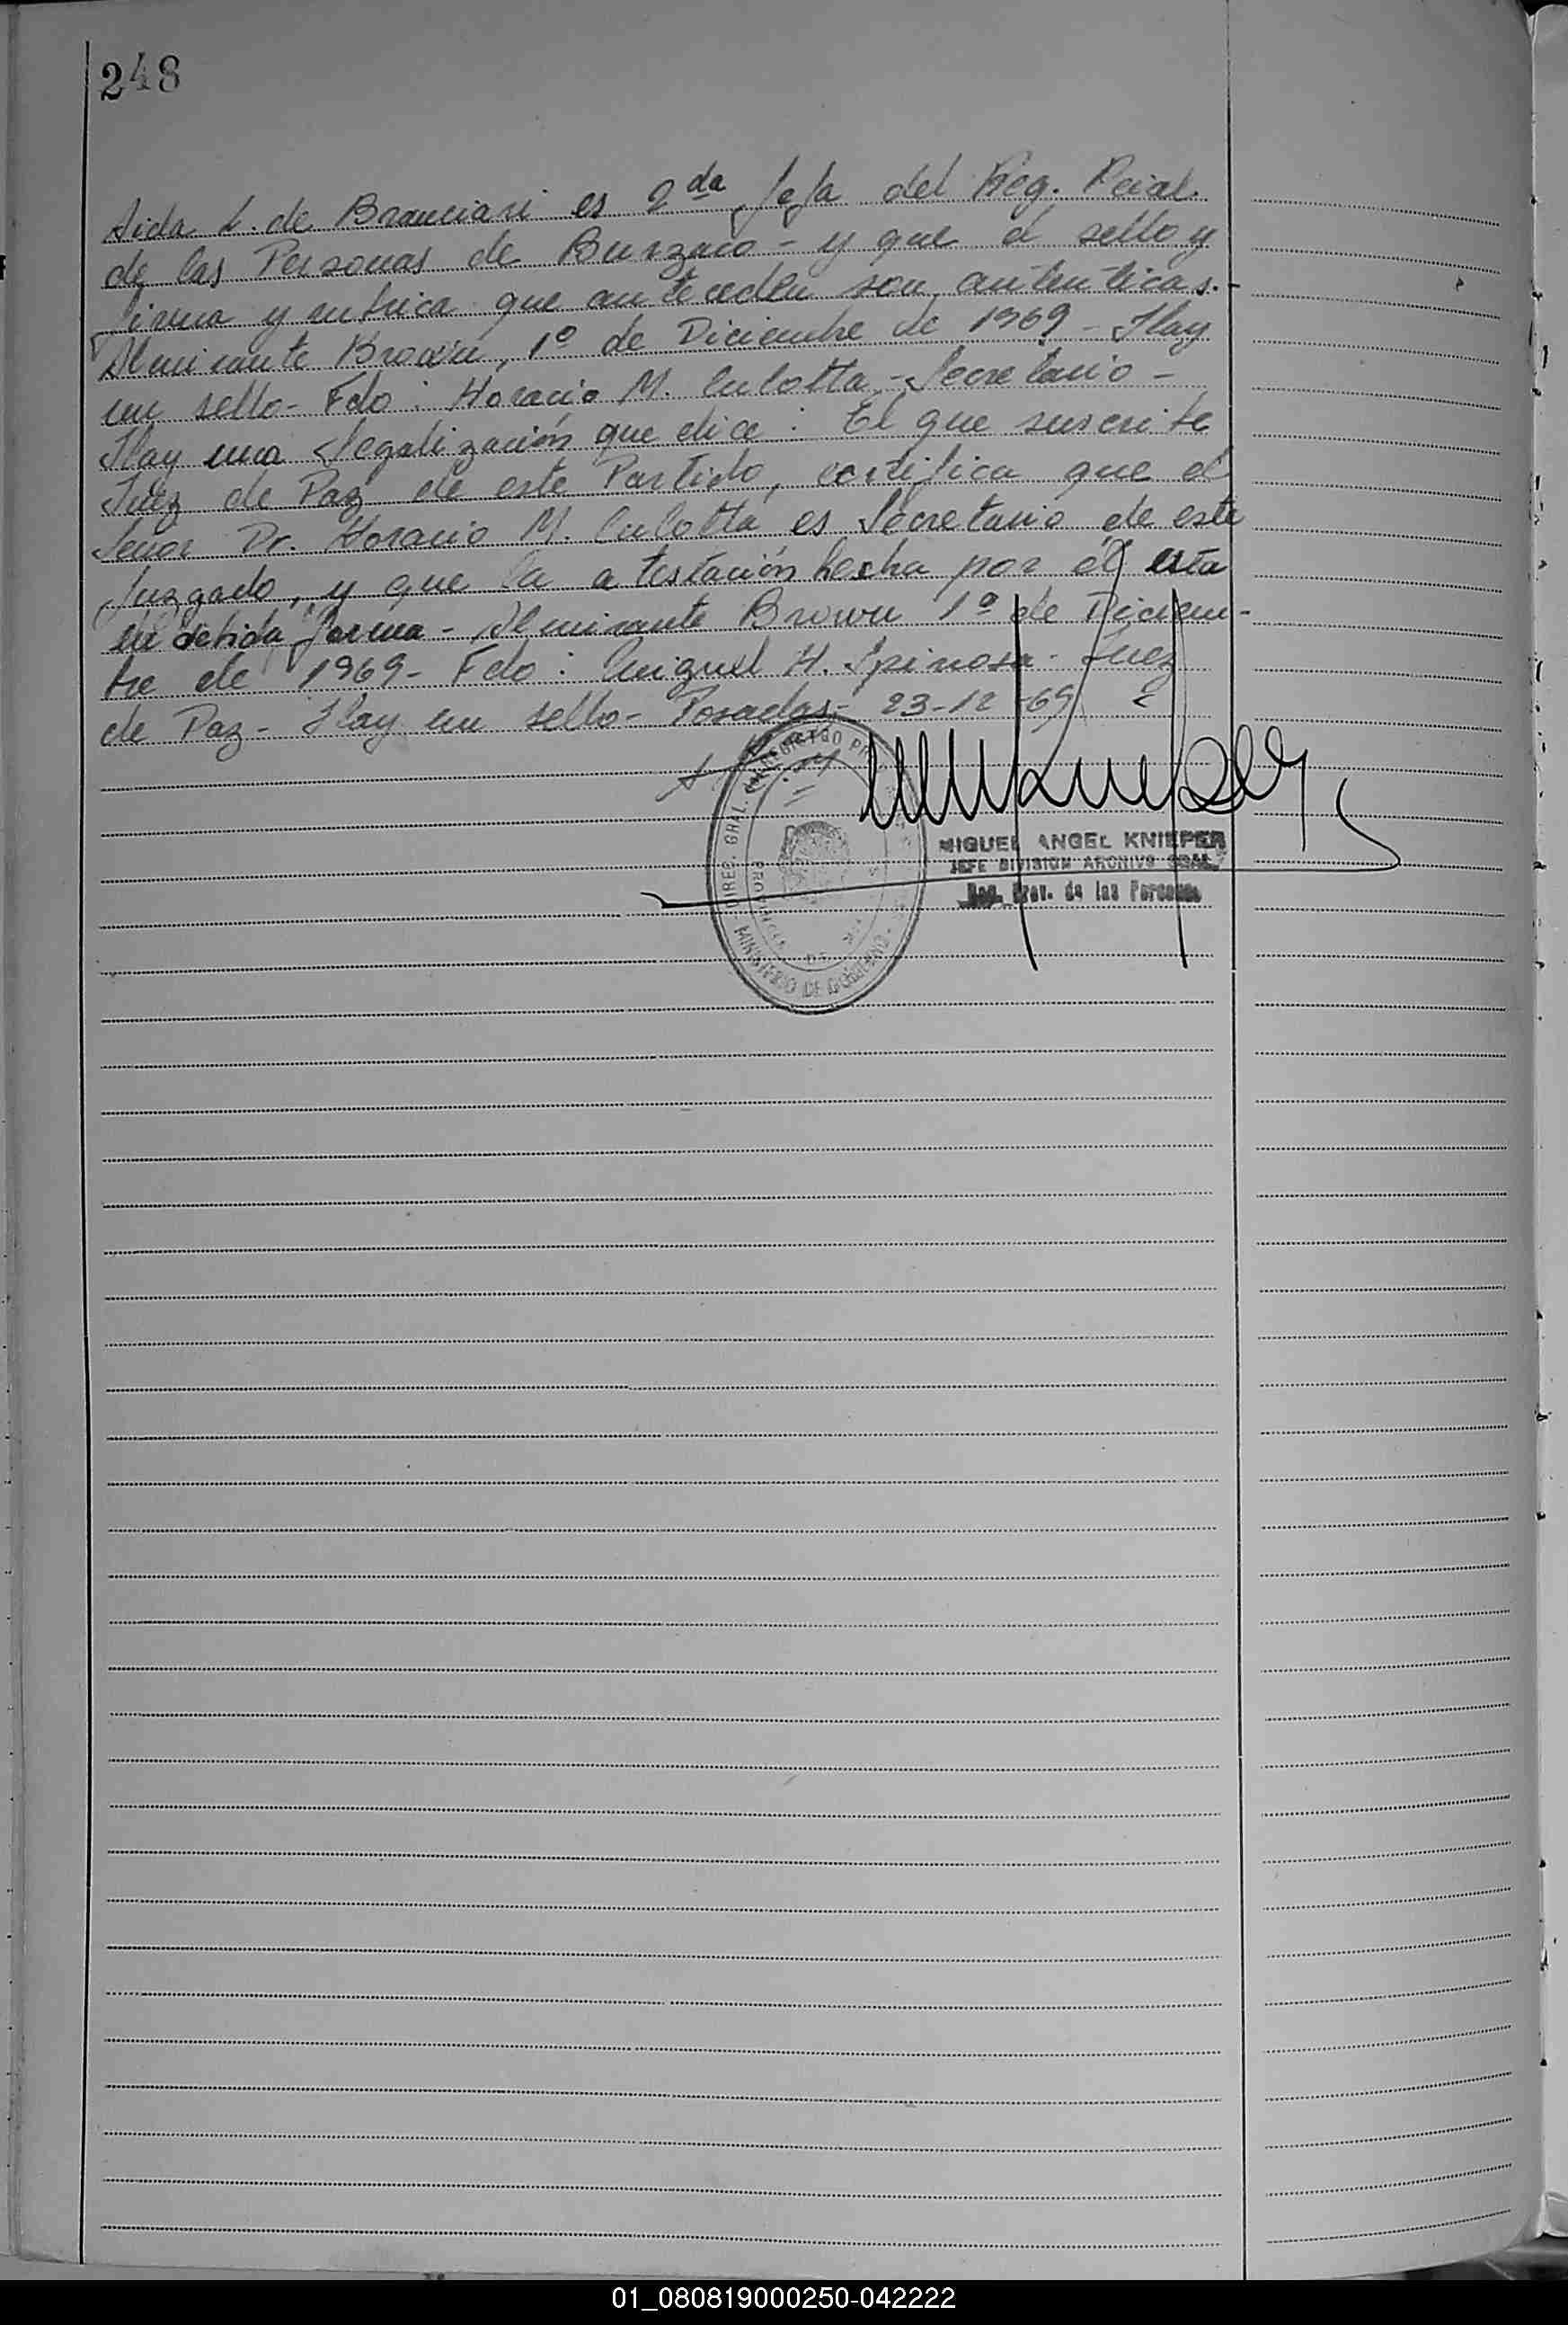 248
Aida L. de Branciari es 2da Jefa del Reg. Pcial.
de las Personas de Burzaco - y que el sello y
firma y rubrica que anteceden son autenticas.-
Almirante Brown, 1º de Diciembre de 1969 - Hay
un sello - Fdo: Horacio M. Culotta - Secretario -
Hay una Legalización que dice: El que suscribe
Juez de Paz de este Partido, certifica que el
Señor Dr. Horacio M. Culotta es Secretario de este
Juzgado, y que la atestación hecha por él esta
en debida forma - Almirante Brown 1º de Diciem-
bre de 1969 - Fdo: Miguel H. Spinosa - Juez
de Paz - Hay un sello - Posadas, 23-12-69
DIREC. GRAL. REGISTRO
PROVINCIA DE
MINISTERIO DE GOBIERNO
MIGUEL ANGEL KNIEPER
JEFE DIVISION ARCHIVO GRAL.
Reg. Prov. de las Personas
01_080819000250-042222